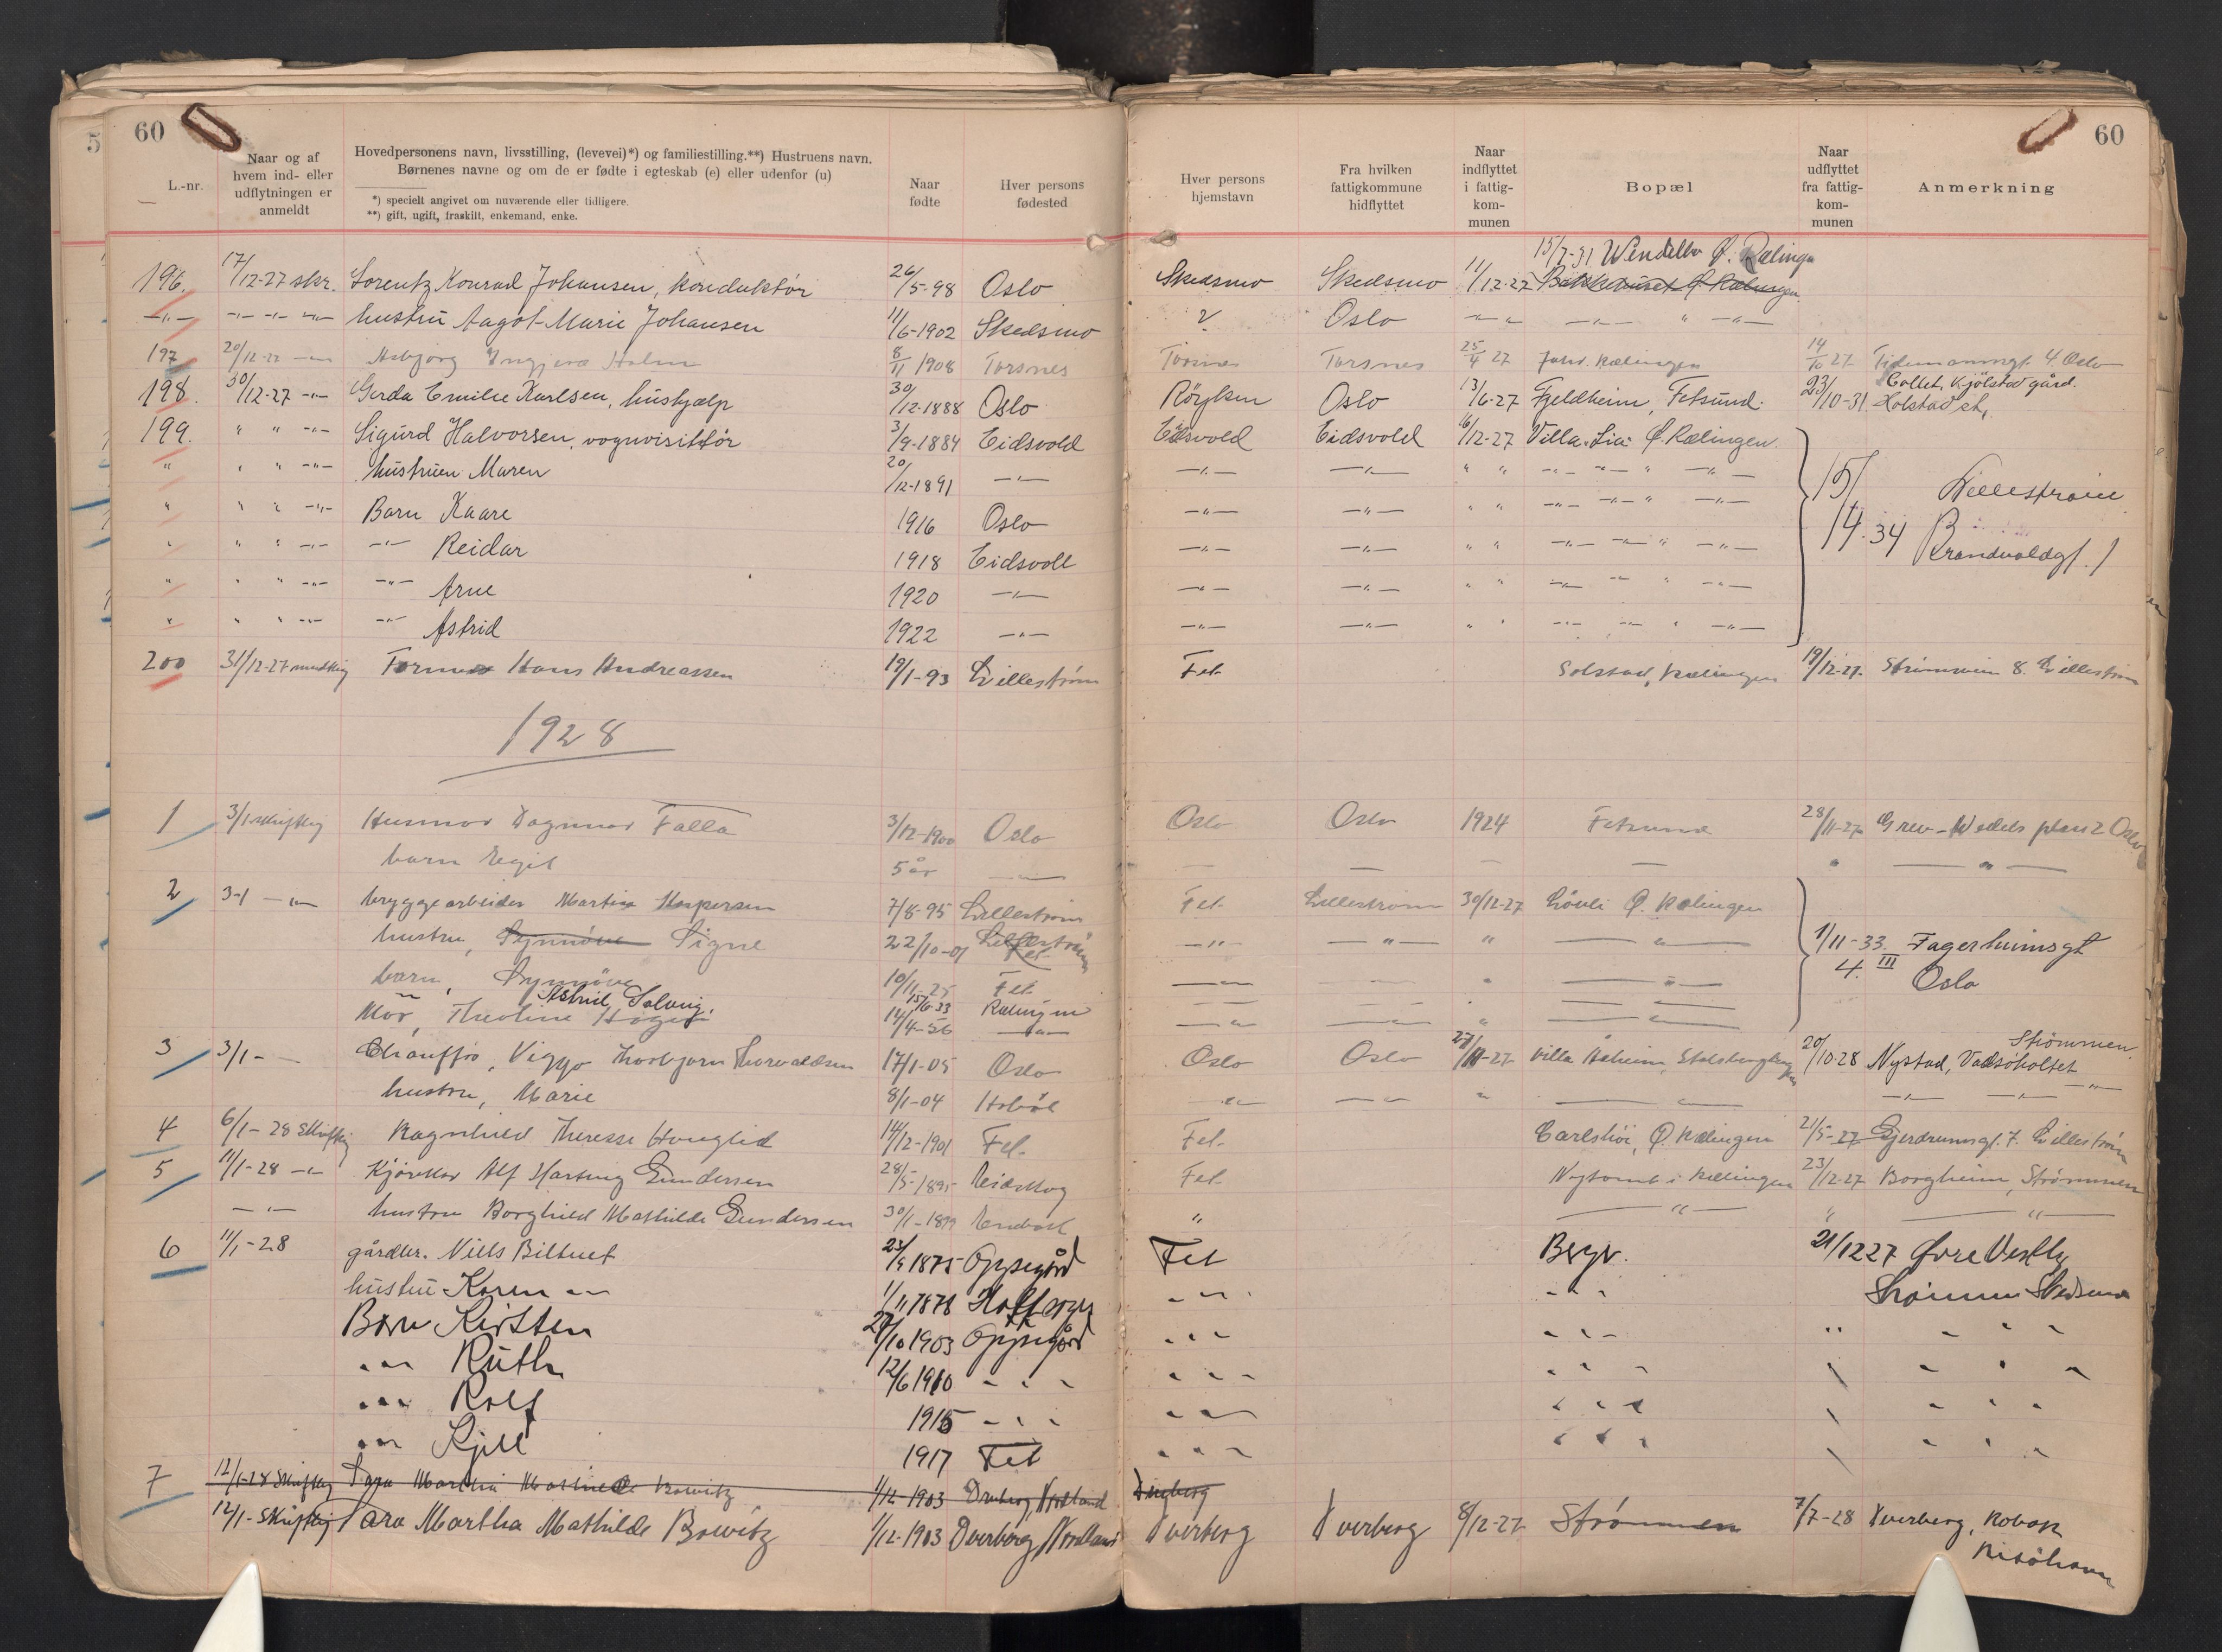 60
L.-nr.
Naar og af hvem ind- eller udflytningen er anmeldt
Hovedpersonens navn, livsstilling, (levevei)*) og familiestilling.**) Hustruens navn.
Børnenes navne og om de er fødte i egteskab (e) eller udenfor (u)
*) specielt angivet om nuværende eller tidligere.
**) gift, ugift, fraskilt, enkemand, enke.
Naar fødte
Hver persons fødested
Hver persons hjemstavn
Fra hvilken fattigkommune hidflyttet
Naar indflyttet i fattig-kom-munen
Bopæl
Naar udflyttet fra fattig-kom-munen
Anmerkning
60
15/7-31 Wendelbo Ø. Rælingen
196. 17/12-27 skr. Lorentz Konrad Johansen, konduktør 26/5-98 Oslo Skedsmo Skedsmo 11/12-27 Ø. Rælingen
-"- -"- -"- -"- hustru Aagot Marie Johansen 11/6-1902 Skedsmo ? Oslo -"- -"- " -"-
197 20/12-27 -"- Asbjørg Holm 8/11 1908 Torsnes Torsnes Torsnes 25/4 27 Rælingen 14/10 27 Tidemannsgt. 4 Oslo
198. 30/12-27 -"- Gerda Emilie Karlsen, hushjælp 30/12-1888 Oslo Röyken Oslo 13/6-27 Fjeldheim, Fetsund. 23/10-31 Collet, Kjölstad gård. Holstad st.
199. " " -"- Sigurd Halvorsen, vognvisittör 3/9-1884 Eidsvold Eidsvold Eidsvold 16/12-27 Villa Lia Ø. Rælingen.
" " " -"- hustruen Maren 20/12-1891 -"- -"- -"- " " -"- -"- " -"- 15/ Lillestrøm
" " " -"- Barn Kaare 1916 Oslo -"- -"- " " -"- -"- " -"-
" " " -"- -"- Reidar 1918 Eidsvoll -"- -"- " " -"- -"- " -"- /4-34 Brandvoldgt. 1
" " " -"- -"- Arne 1920 -"- -"- -"- " " -"- -"- " -"-
" " " -"- -"- Astrid 1922 -"- -"- -"- " " -"- -"- " -"-
200 31/12-27 mundtlig Hans Andreassen 19/1-93 Lillestrøm Fet Solstad, Rælingen 19/12-27. 8. Lillestrøm
1928
1 3/1 skriftlig Husmor Dagmar Falla 3/12-1900 Oslo Oslo Oslo 1924 Fetsund 28/11-27 Grev Wedels plass 2 Oslo
barn Egil 5 år — — — — — " —"—
2 3-1 -"- bryggearbeider Martin Kaspersen 7/8-95 Lillestrøm Fet Lillestrøm 30/12-27 Løvli Ø. Rælingen
hustru, Synnöve Signe 22/10-01 Lillestrøm Fet -"- -"- " -"- 1/11-33. Fagerheimsgt
barn, Synnöve 10/1-25 Fet -"- " -"- 4. III Oslo
" Astrid Solveig. 15/6-33 Rælingen
Mor, Theoline 14/4-56 -"- -"- -"- " -"-
3 3/1 - — Chauffør, Viggo Thorbjørn Thorvaldsen 17/1-05 Oslo Oslo Oslo 27/11-27 Villa 20/10-28 Nystad, Vadsöholtet Strømmen.
hustru, Marie 8/1-04 Hobøl -"- -"- " -"- -"- -"- -"-
4 6/1-28 Skriftlig Ragnhild Therese 14/12-1901 Fet. Fet. Carlshöi, Ø. Rælingen 21/5-27 Gjerdrumsgt. 7. Lillestrøm
5 11/1-28 -"- Alf Gundersen 28/5-1895 Eidskog Fet. i Rælingen 23/12-27 Borgheim, Strømmen
-"- hustru Borghild Mathilde Gundersen 30/1-1899 Enebakk " -"- " -"-
6 11/1-28 gårdbr. Niels 23/9 1875 Oppegård Fet 21/12 27 Øvre Vestby
hustru Karen -"- 1/11 1878 -"- -"- Strømmen Skedsmo
Barn Kirsten 27/10 1903 Oppegård -"- -"- " -"-
-"- Ruth 12/6 1910 -"- -"- -"- " -"-
-"- Rolf 1915 -"- -"- -"- " -"-
-"- Kjell 1917 Fet -"- -"- " -"-
7 12/1-28 Skriftlig Tara Martha Mathilde 1/12-1903 Dverberg, Nordland Dverberg
12/1- Skriftlig Tara Martha Mathilde Bowitz 1/12-1903 Dverberg, Nordland Dverberg Dverberg 8/12-27 Strømmen 7/7-28 Dverberg, Risöhavn